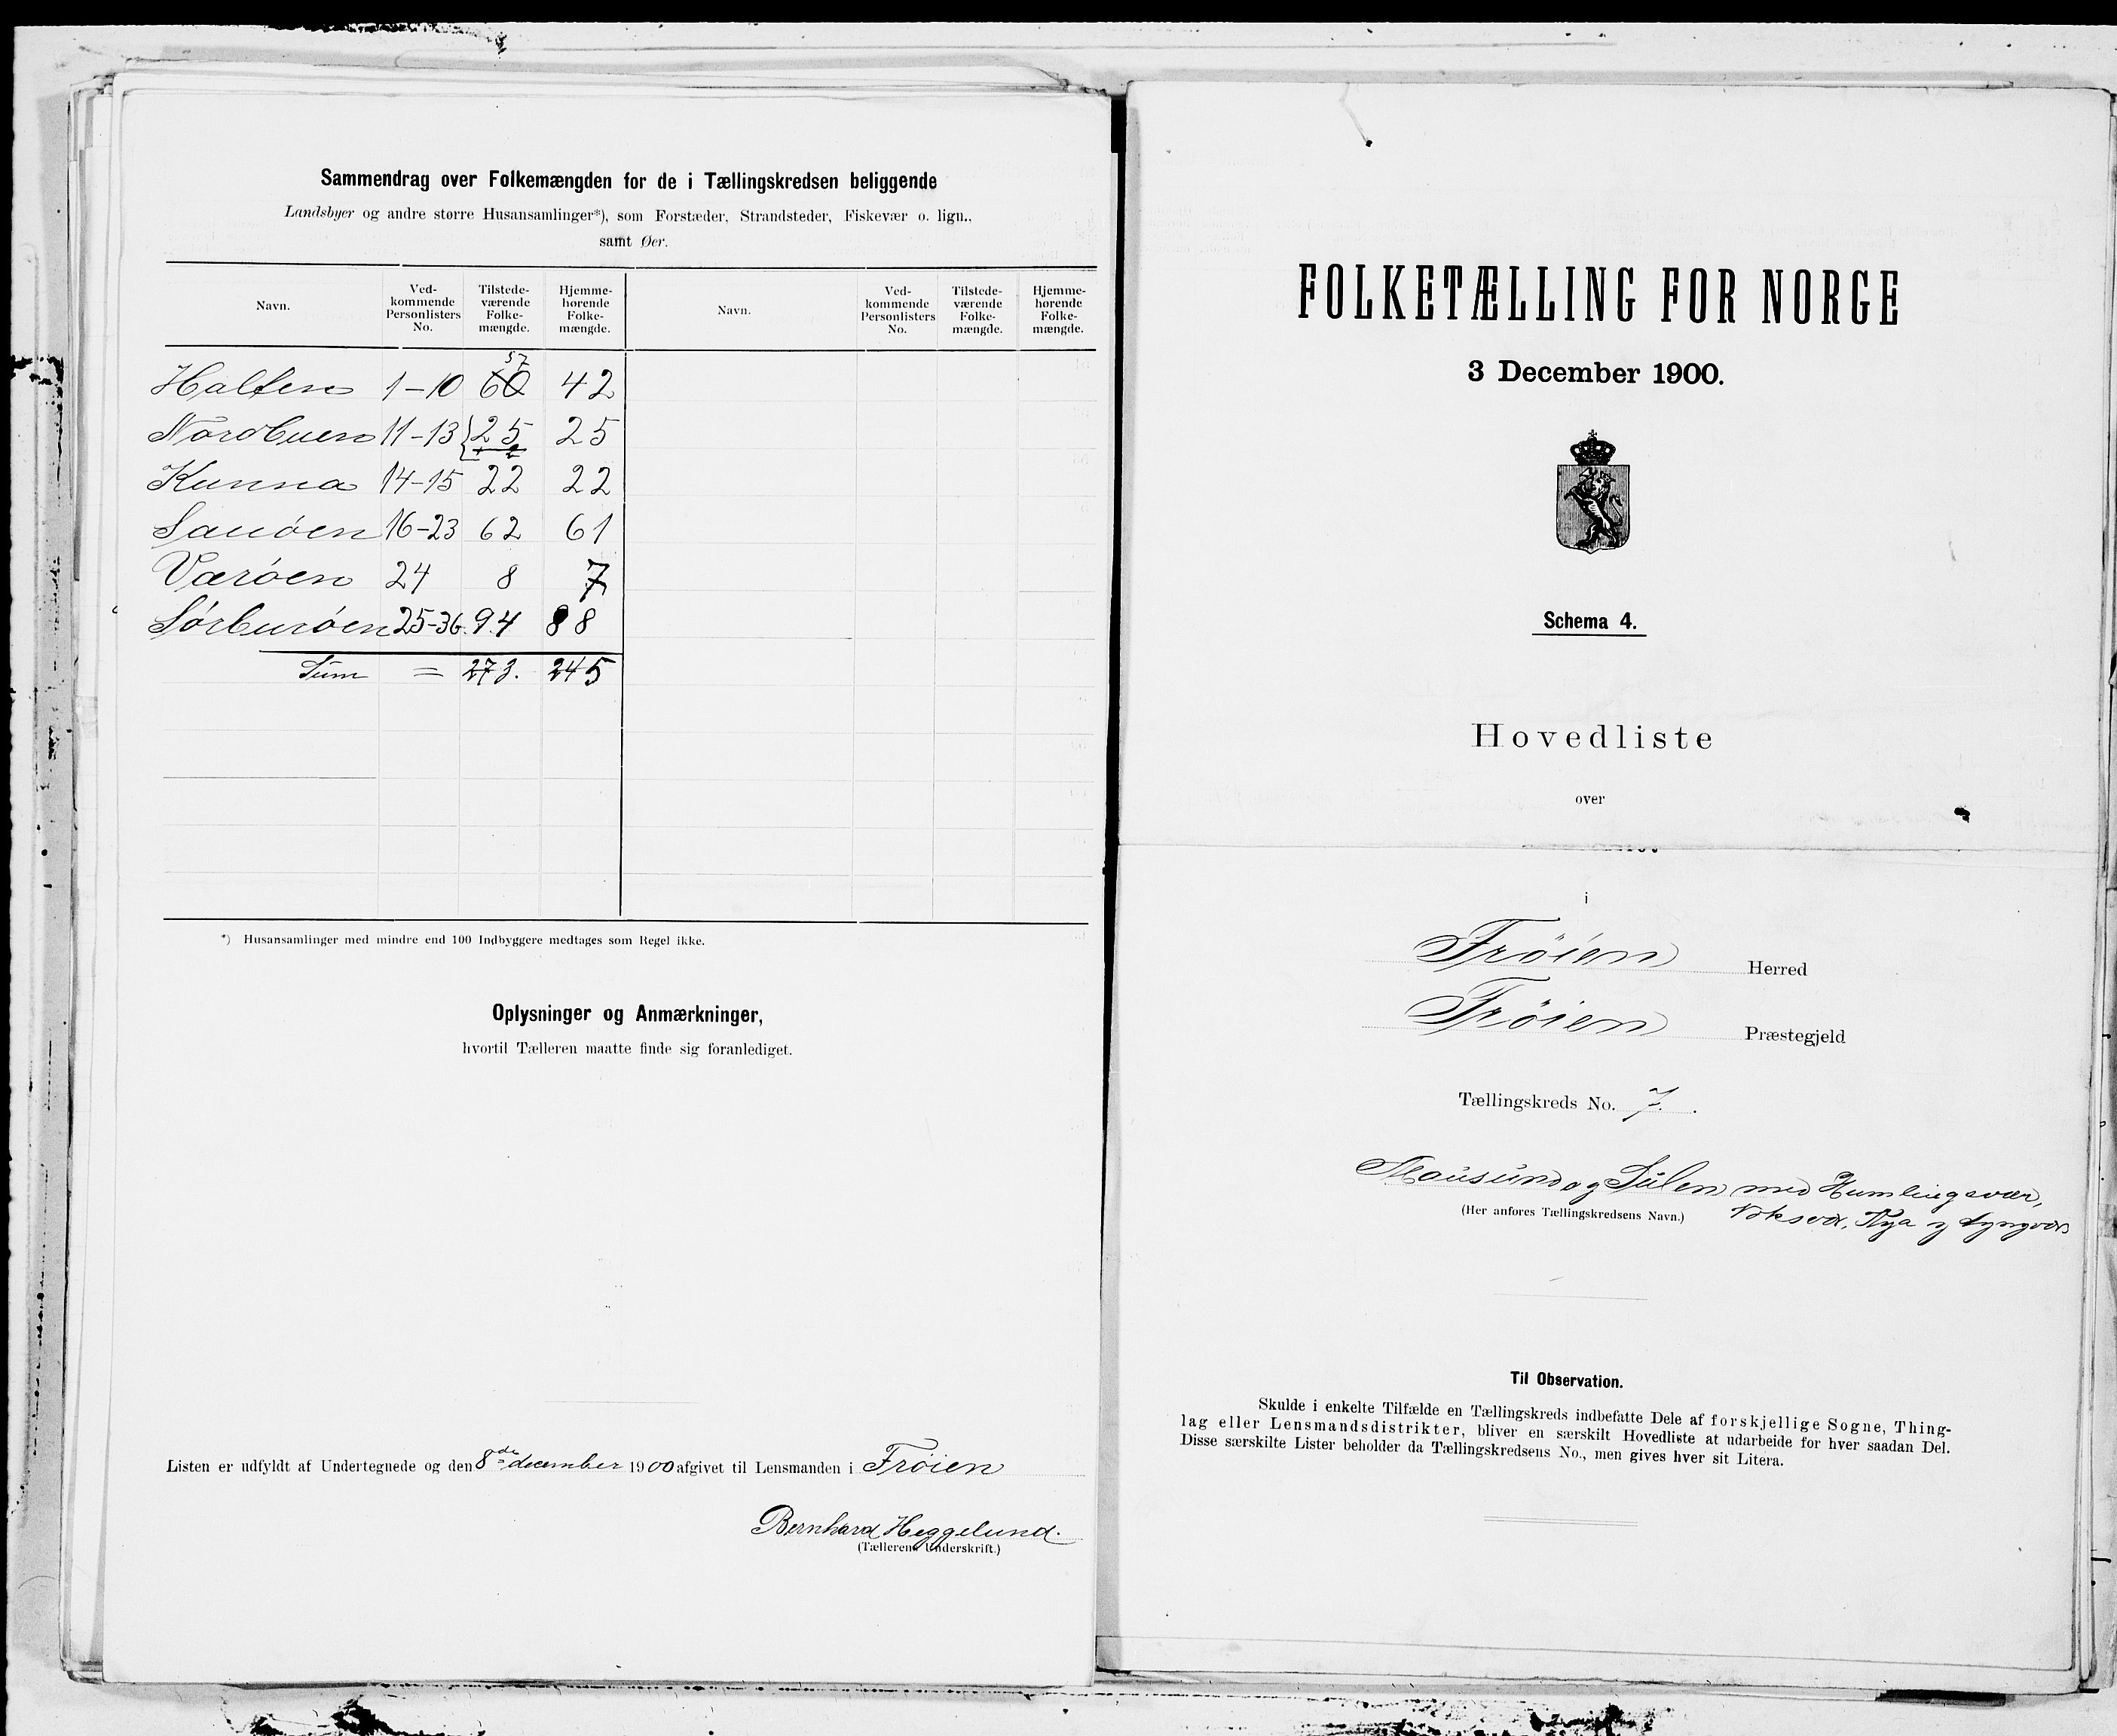 Sammendrag over Folkemængden for de i Tællingskredsen beliggende
Landsbyer og andre større Husansamlinger*), som Forstæder, Strandsteder, Fiskevær o. lign.,
samt Øer.
Navn. Ved-kommende Personlisters No. Tilstede-værende Folke-mængde. Hjemme-hørende Folke-mængde. Navn. Ved-kommende Personlisters No. Tilstede-værende Folke-mængde. Hjemme-hørende Folke-mængde.
57
Halten 1-10 60 42
Nordbuen 11-13 25 25
Kunna 14-15 22 22
Sauöen 16-23 62 61
Væröen 24 8 7
Sörburöen 25-36 94 88
Sum = 273. 245
*) Husansamlinger med mindre end 100 Indbyggere medtages som Regel ikke.
Oplysninger og Anmærkninger,
hvortil Tælleren maatte finde sig foranlediget.
Listen er udfyldt af Undertegnede og den 8de december 1900 afgivet til Lensmanden i Fröien
Bernhard Heggelund.
(Tællerens Underskrift.)
FOLKETÆLLING FOR NORGE
3 December 1900.
Schema 4.
Hovedliste
over
i
Fröien Herred
Fröien Præstegjeld
Tællingskreds No. 7.
Mausund og Sulen med Humlingsvær,
(Her anføres Tællingskredsens Navn.)
Til Observation.
Skulde i enkelte Tilfælde en Tællingskreds indbefatte Dele af forskjellige Sogne, Thing-
lag eller Lensmandsdistrikter, bliver en særskilt Hovedliste at udarbeide for hver saadan Del.
Disse særskilte Lister beholder da Tællingskredsens No., men gives hver sit Litera.